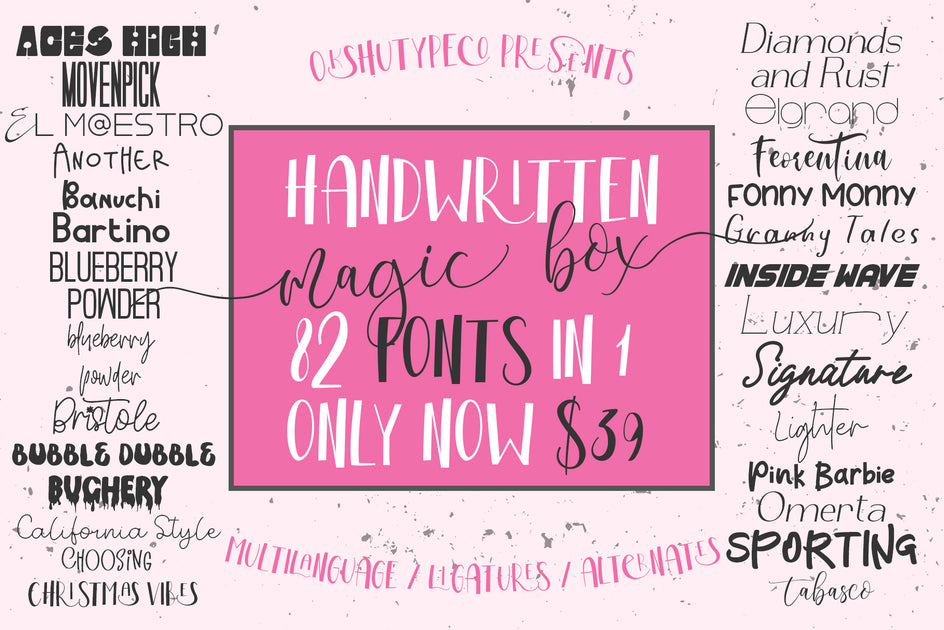 OKSHUTYPECO PRESENTS
ACES HIGH
MOVENPICK
EL M@ESTRO
ANOTHER
Banuchi
Bartino
BLUEBERRY
POWDER
blueberry
powder
Bristole
BUBBLE DUBBLE
BUGHERY
California Style
CHOOSING
CHRISTMAS VIBES
HANDWRITTEN
magic box
82 FONTS IN 1
ONLY NOW $39
Diamonds
and Rust
Elgrand
Feorentina
FONNY MONNY
Granny Tales
INSIDE WAVE
Luxury
Signature
Lighter
Pink Barbie
Omerta
SPORTING
tabasco
MULTILANGUAGE / LIGATURES / ALTERNATES